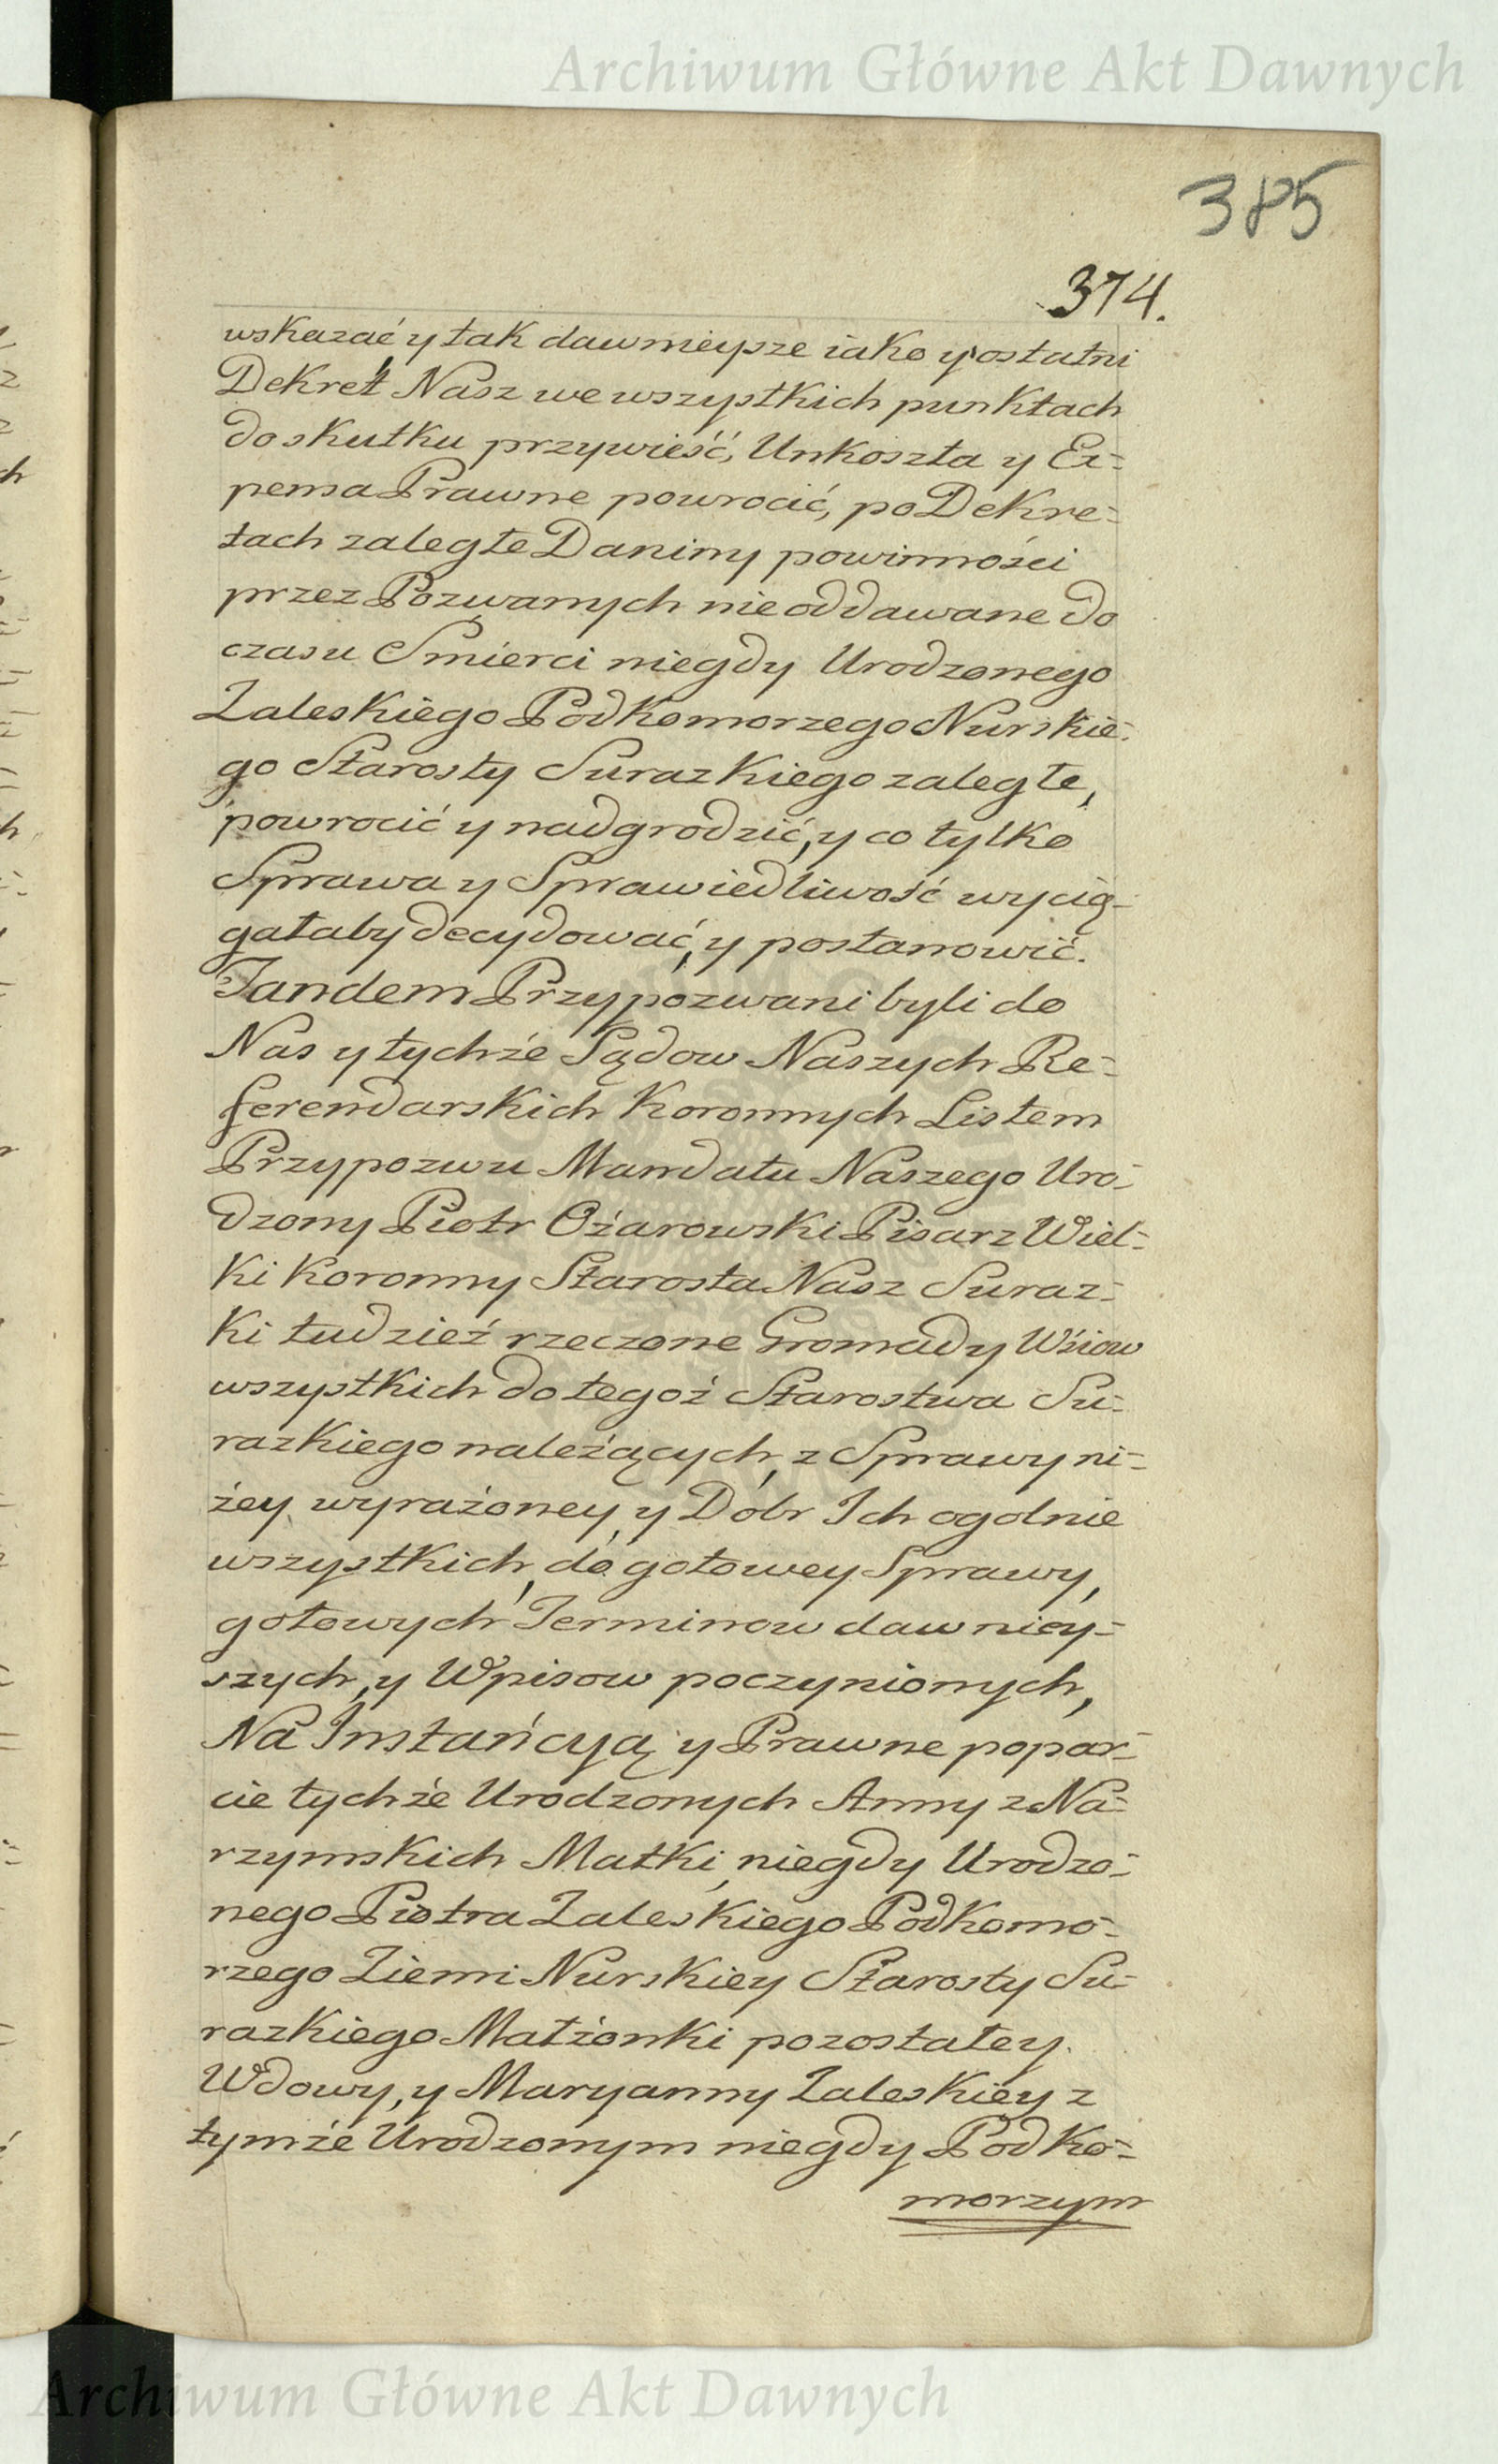 Archiwum Główne Akt Dawnych
385
374.
wskazać y tak dawnieysze iako y ostatni
Dekret Nasz we wszystkich punktach
do skutku przywieść, Unkoszta y Ex=
pensa Prawne powrocić, po Dekre=
tach zaległe Daniny powinności
przez Pozwanych nie oddawane do
czasu Smierci niegdy Urodzonego
Zaleskiego Podkomorzego Nurskie=
go Starosty Surazkiego zaległe,
powrocić y nadgrodzić, y co tylko
Sprawa y Sprawiedliwość wycią=
gałaby decydować, y postanowić.
Tandem Przypozwani byli do
Nas y tychże Sądow Naszych Re=
ferendarskich Koronnych Listem
Przypozwu Mandatu Naszego Uro=
dzony Piotr Ożarowski Pisarz Wiel=
ki Koronny Starosta Nasz Suraz=
ki tudzież rzeczone Gromady Wsiow
wszystkich do tegoż Starostwa Su=
razkiego należących, z Sprawy ni=
żey wyrażoney, y Dobr Ich ogolnie
wszystkich, do gotowey Sprawy,
gotowych Terminow dawniey=
szych, y Wpisow poczynionych,
Na Instańcyą y Prawne popar=
cie tychże Urodzonych Anny z Na=
rzymskich Matki, niegdy Urodzo=
nego Piotra Zaleskiego Podkomo=
rzego Ziemi Nurskiey Starosty Su=
razkiego Małżonki pozostałey
Wdowy, y Maryanny Zaleskiey z
tymże Urodzonym niegdy Podko=
morzym
Archiwum Główne Akt Dawnych